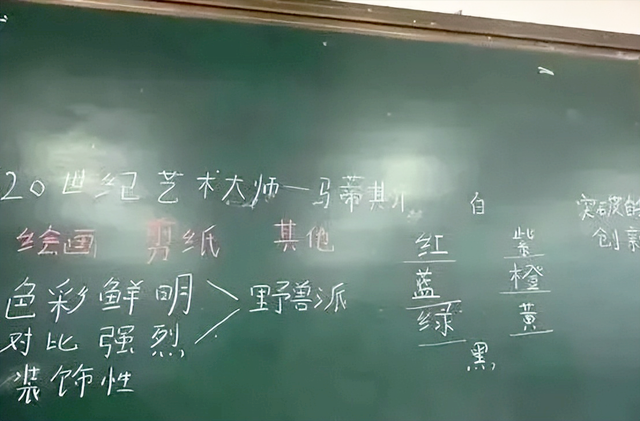 20世纪艺术大师—马蒂斯
绘画 剪纸 其他
色彩鲜明
对比强烈
装饰性
野兽派
白
红 紫
蓝 橙
绿 黄
黑
突破的
创新